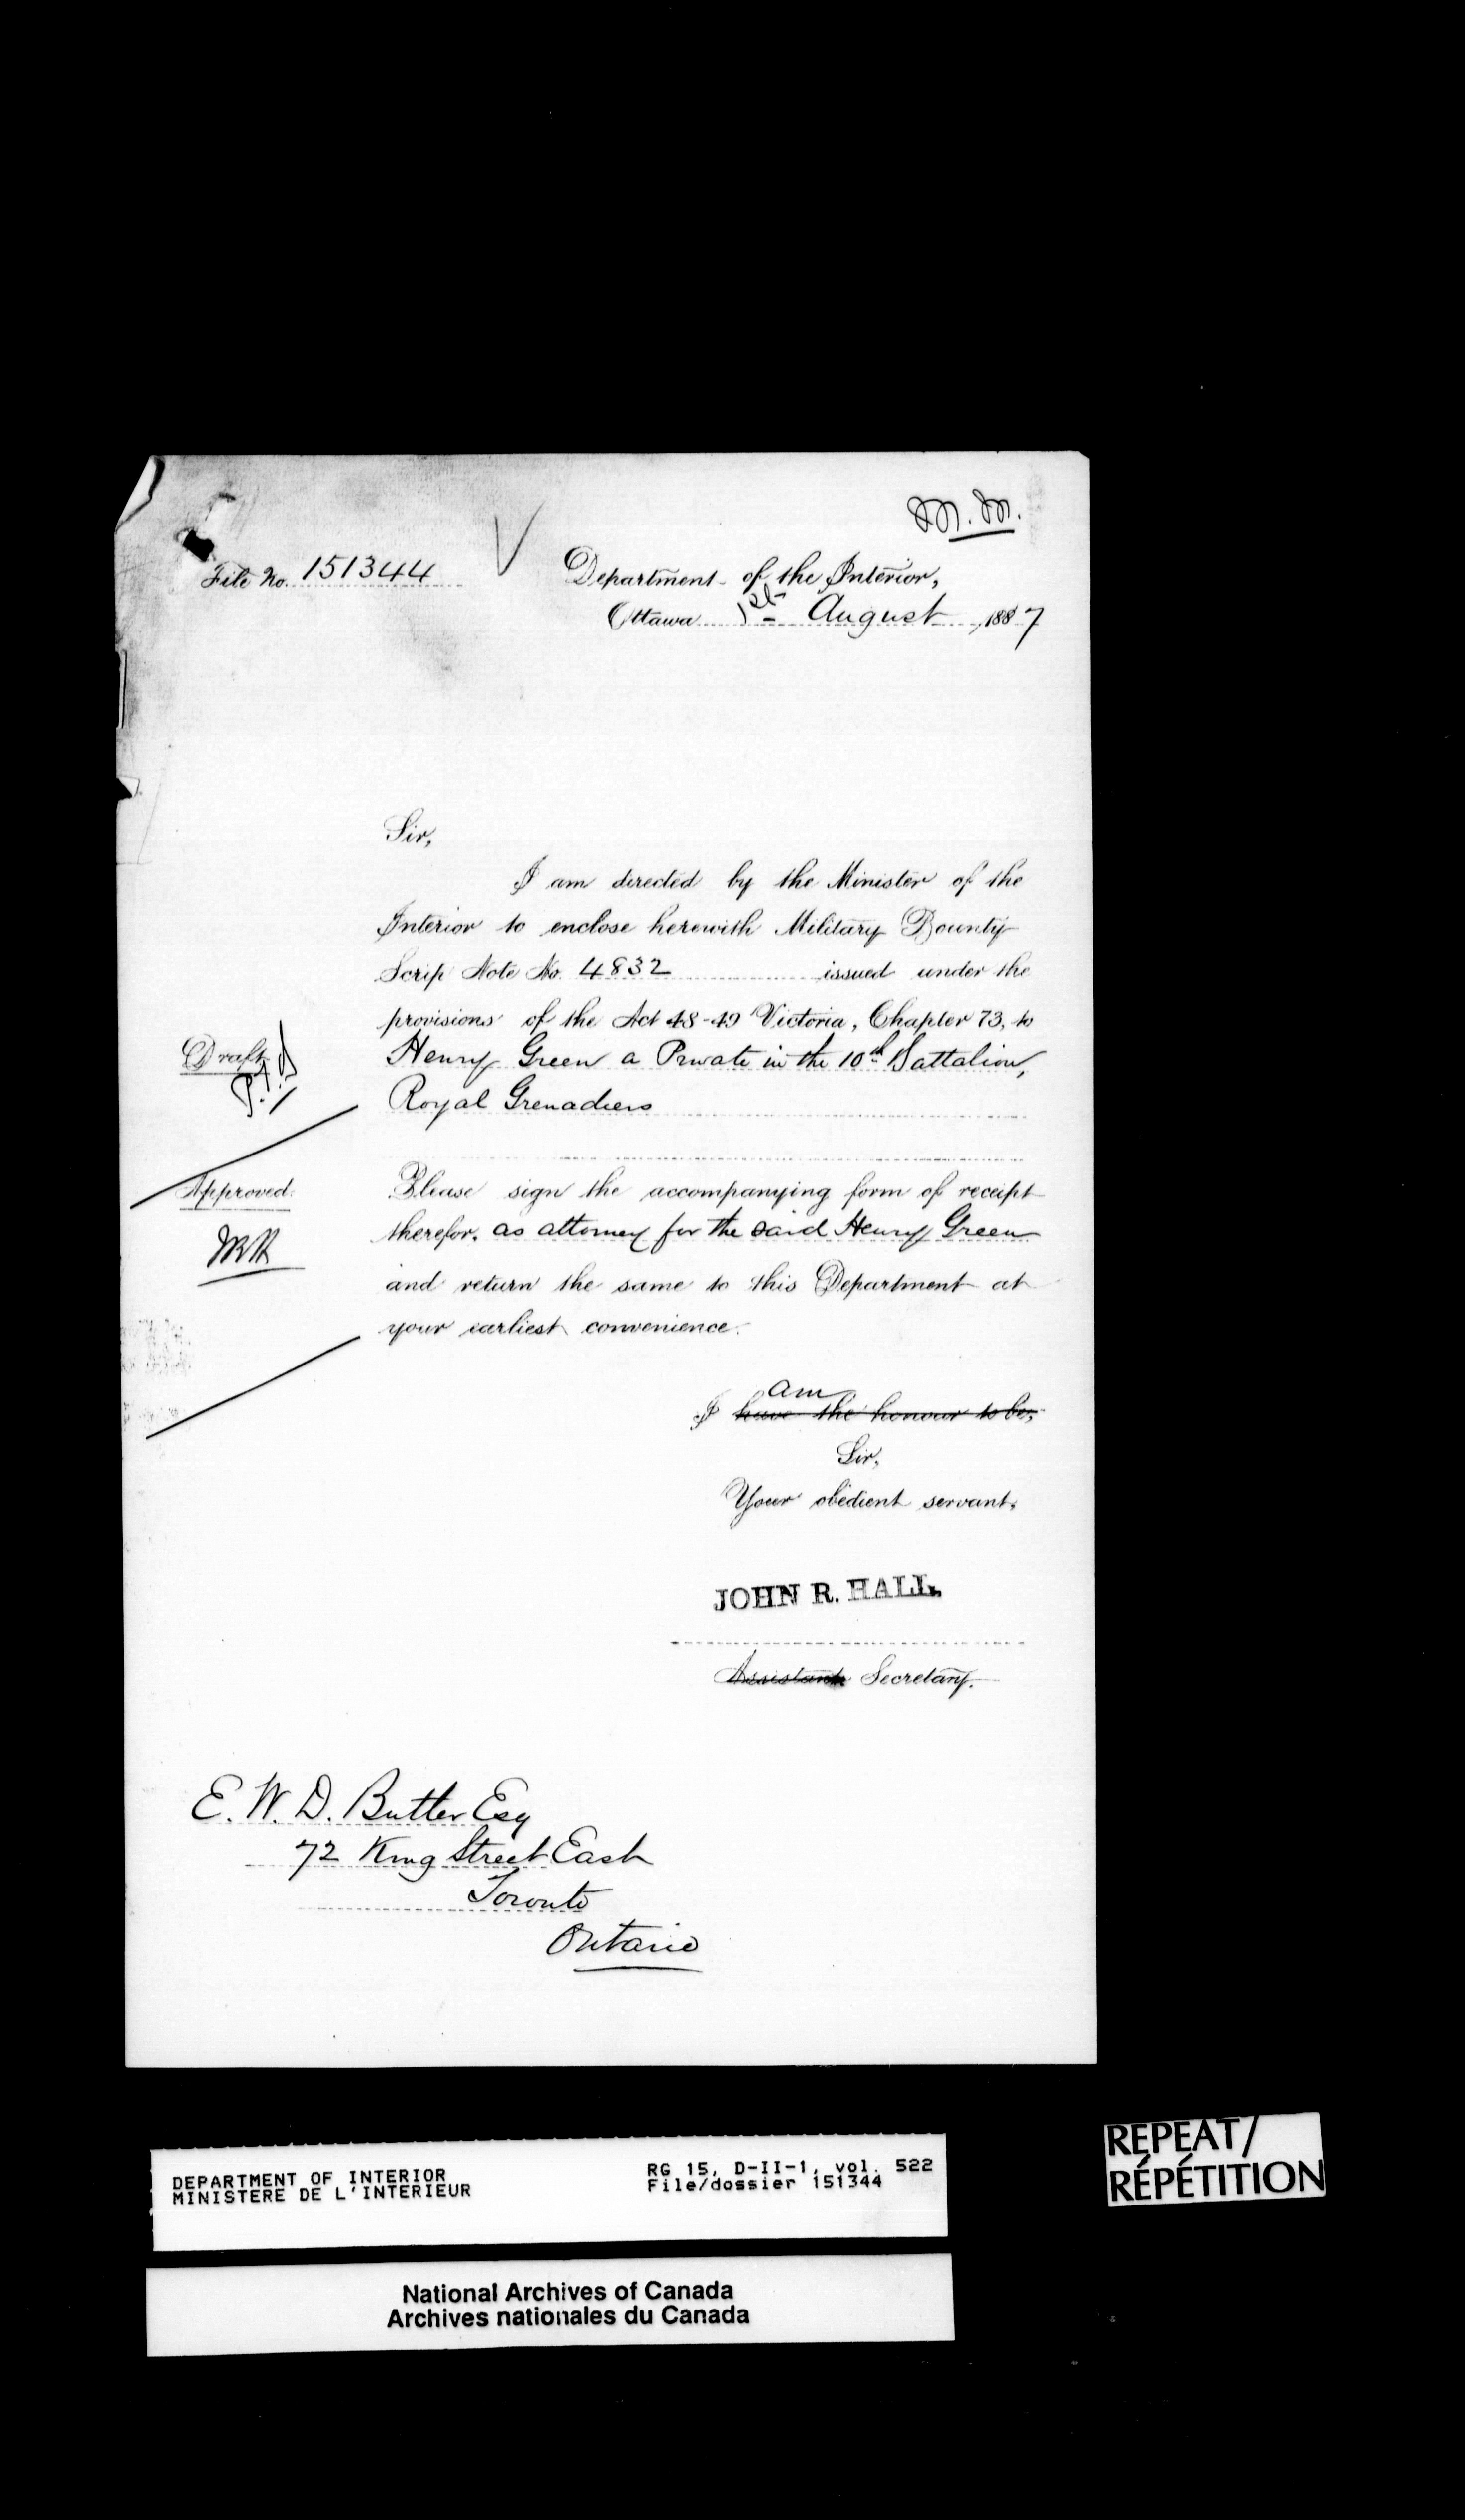 M.M.
File No. 151344
Department of the Interior,
Ottawa 1st August, 1887
Sir,
I am directed by the Minister of the
Interior to enclose herewith Military Bounty
Scrip Note No. 4832 issued under the
provisions of the Act 48-49 Victoria, Chapter 73, to
Draft
Henry Green a Private in the 10th Battalion,
Royal Grenadiers
Approved.
Please sign the accompanying form of receipt
therefor, as attorney for the said Henry Green
and return the same to this Department at
your earliest convenience.
am
I have the honour to be,
Sir,
Your obedient servant,
JOHN R. HALL,
Assistant Secretary.
E. W. D. Butler Esq
72 King Street East
Toronto
Ontario
DEPARTMENT OF INTERIOR
MINISTERE DE L'INTERIEUR
RG 15, D-II-1, vol. 522
File/dossier 151344
REPEAT/
RÉPÉTITION
National Archives of Canada
Archives nationales du Canada